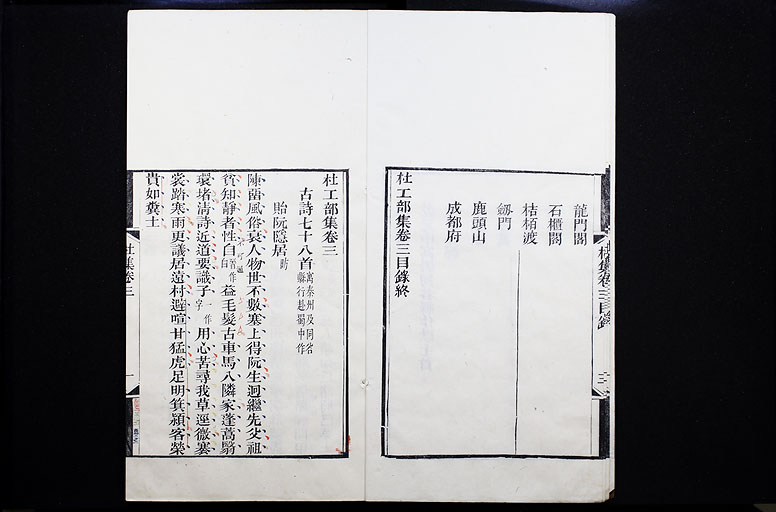 龍門閣
石櫃閣
桔栢渡
劔門
鹿頭山
成都府
杜工部集卷三目錄終
杜集卷三目錄
杜工部集卷三
古詩七十八首寓秦州及同谷縣行赴蜀中作
貽阮隱居昉
陳留風俗衰人物世不數塞上得阮生迥繼先父祖
貧知靜者性自白習作益毛髮古車馬入隣家蓬蒿翳
環堵清詩近道要識子字作用心苦尋我草逕微褰
裳踏寒雨更議居遠村避喧甘猛虎足明箕潁客榮
貴如糞土
杜集卷三
一